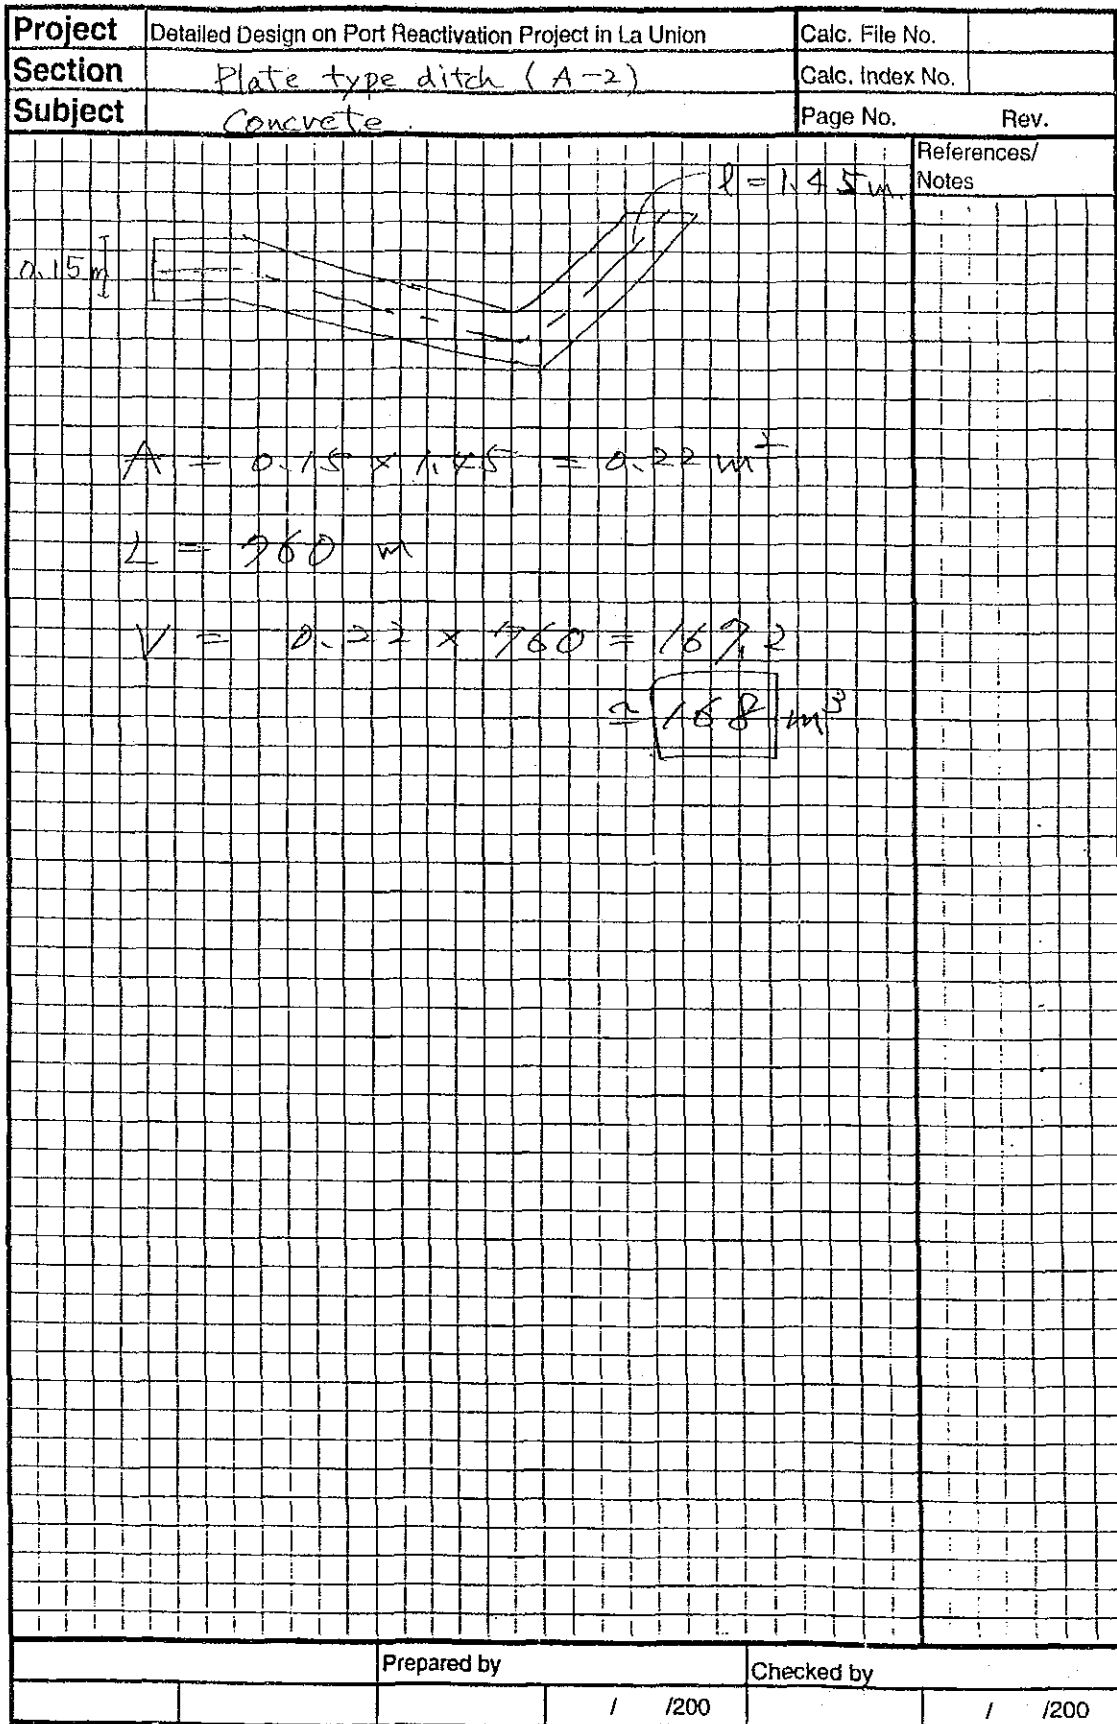 Project Detailed Design on Port Reactivation Project in La Union Calc. File No.
Section Plate type ditch (A-2) Calc. Index No.
Subject Concrete. Page No. Rev.
References/
Notes
l = 1.45 m.
0.15 m
A = 0.15 × 1.45 = 0.22 m²
L = 760 m
V = 0.22 × 760 = 167.2
≃ 168 m³
Prepared by Checked by
/ /200 / /200